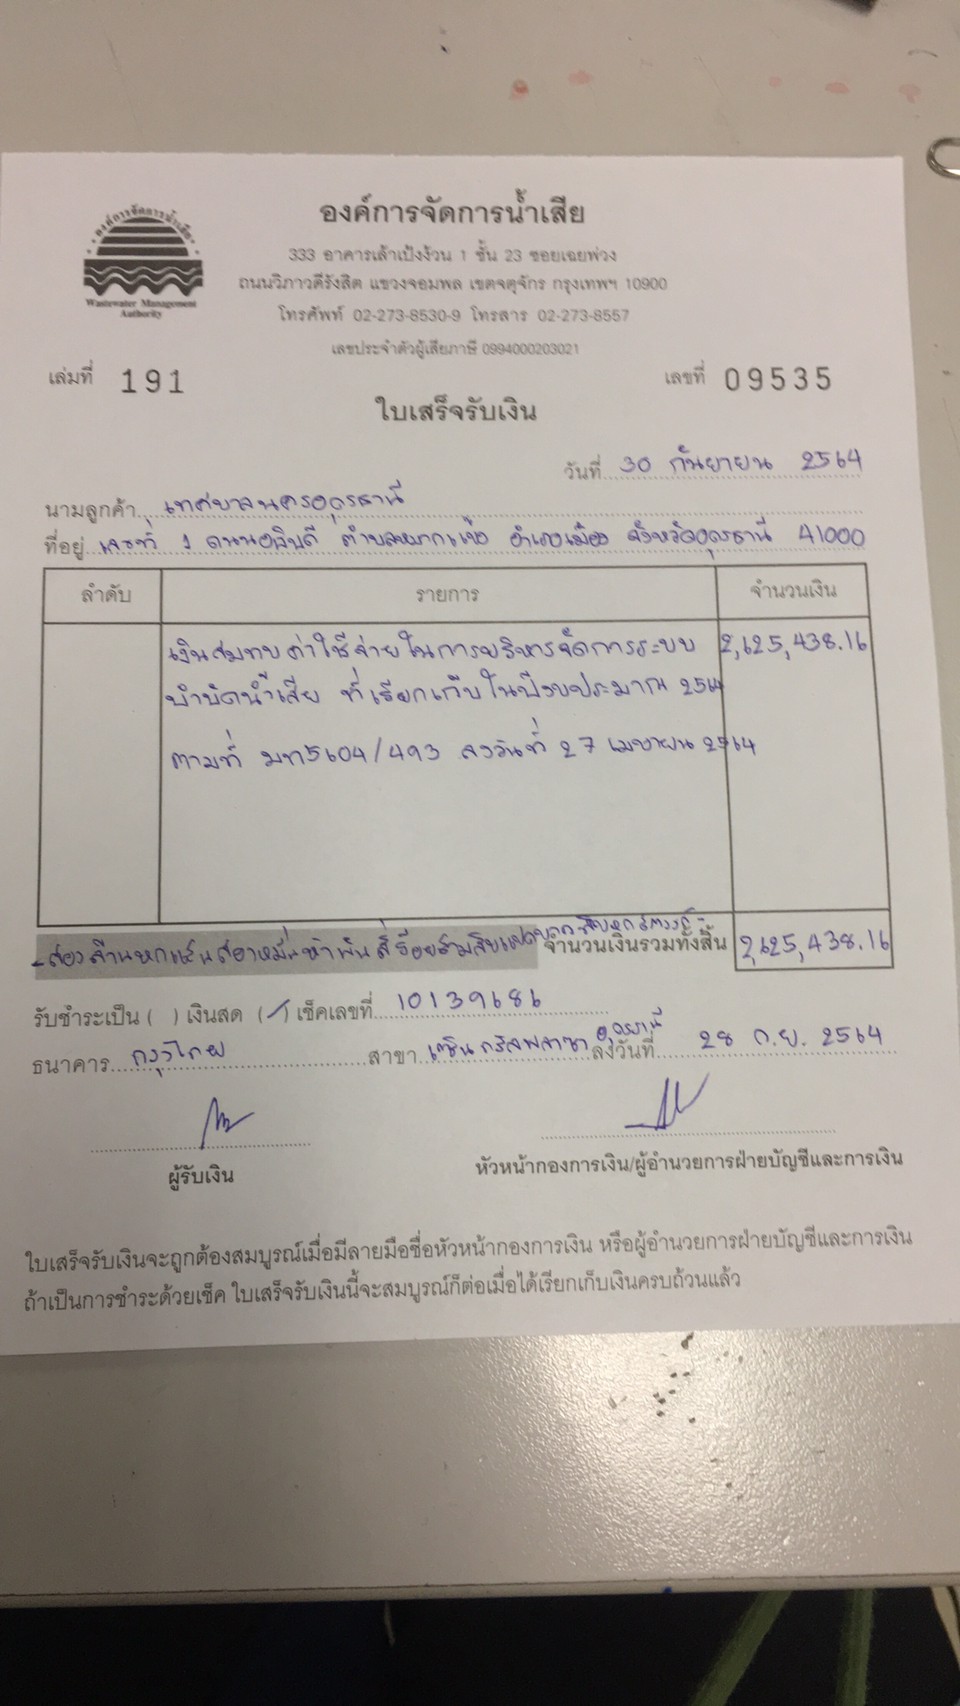 องค์การจัดการน้ำเสีย
333 อาคารเล้าเป้งง้วน 1 ชั้น 23 ซอยเฉยพ่วง
ถนนวิภาวดีรังสิต แขวงจอมพล เขตจตุจักร กรุงเทพฯ 10900
โทรศัพท์ 02-273-8530-9 โทรสาร 02-273-8557
เลขประจำตัวผู้เสียภาษี 0994000203021
องค์การจัดการน้ำเสีย
Wastewater Management
Authority
เล่มที่ 191
เลขที่ 09535
ใบเสร็จรับเงิน
วันที่ 30 กันยายน 2564
นามลูกค้า เทศบาลนครอุดรธานี
ที่อยู่ เลขที่ 1 ถนนอธิบดี ตำบลหมากแข้ง อำเภอเมือง จังหวัดอุดรธานี 41000
ลำดับ รายการ จำนวนเงิน
เงินสมทบค่าใช้จ่ายในการบริหารจัดการระบบ 2,625,438.16
บำบัดน้ำเสีย ที่เรียกเก็บในปีงบประมาณ 2564
ตามที่ มท5604/493 ลงวันที่ 27 เมษายน 2564
-สองล้านหกแสนสองหมื่นห้าพันสี่ร้อยสามสิบแปดบาทสิบหกสตางค์- จำนวนเงินรวมทั้งสิ้น 2,625,438.16
รับชำระเป็น ( ) เงินสด (/) เช็คเลขที่ 10139686
ธนาคาร กรุงไทย สาขา เซ็นทรัลพลาซา อุดรธานี ลงวันที่ 28 ก.ย. 2564
ผู้รับเงิน
หัวหน้ากองการเงิน/ผู้อำนวยการฝ่ายบัญชีและการเงิน
ใบเสร็จรับเงินจะถูกต้องสมบูรณ์เมื่อมีลายมือชื่อหัวหน้ากองการเงิน หรือผู้อำนวยการฝ่ายบัญชีและการเงิน
ถ้าเป็นการชำระด้วยเช็ค ใบเสร็จรับเงินนี้จะสมบูรณ์ก็ต่อเมื่อได้เรียกเก็บเงินครบถ้วนแล้ว